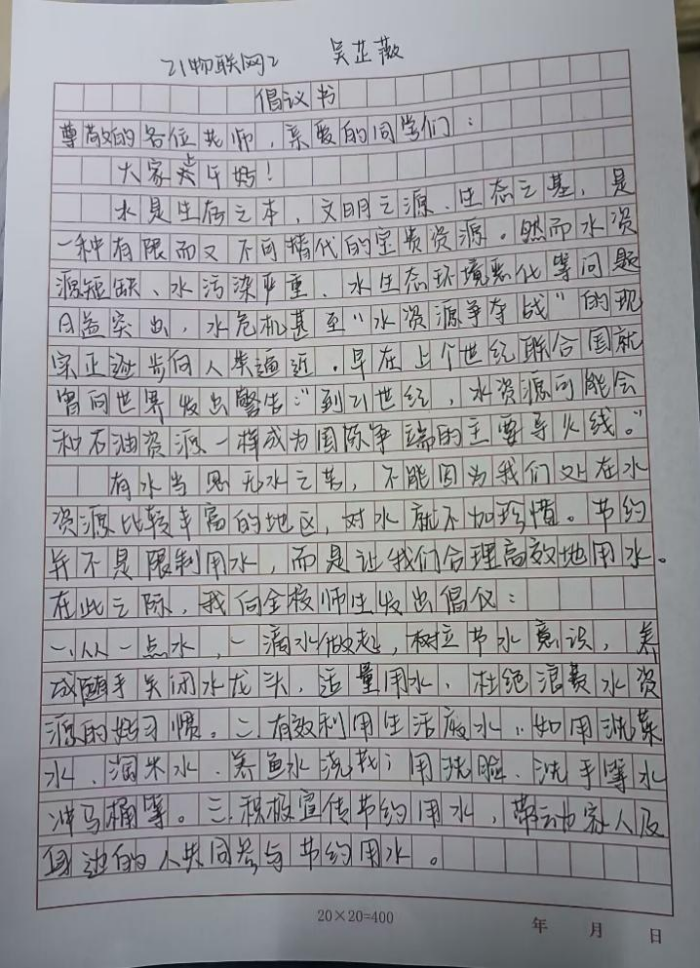 21物联网2 吴芷薇
倡议书
尊敬的各位老师,亲爱的同学们:
大家上午好!
水是生活之本,文明之源、生态之基,是
一种有限而又不可替代的宝贵资源。然而水资
源短缺、水污染严重、水生态环境恶化等问题
日益突出,水危机甚至“水资源争夺战”的现
实正逐步向人类逼近。早在上个世纪联合国就
曾向世界发出警告:“到21世纪,水资源可能会
和石油资源一样成为国际争端的主要导火线。”
有水当思无水之苦,不能因为我们处在水
资源比较丰富的地区,对水就不加珍惜。节约
并不是限制用水,而是让我们合理高效地用水。
在此之际,我向全校师生发出倡仪:
一、从一点水,一滴水做起,树立节水意识,养
成随手关闭水龙头,适量用水、杜绝浪费水资
源的好习惯。二、有效利用生活废水,如用洗菜
水、淘米水、养鱼水浇花;用洗脸、洗手等水
冲马桶等。三、积极宣传节约用水,带动家人及
身边的人共同参与节约用水。
20×20=400
年 月 日